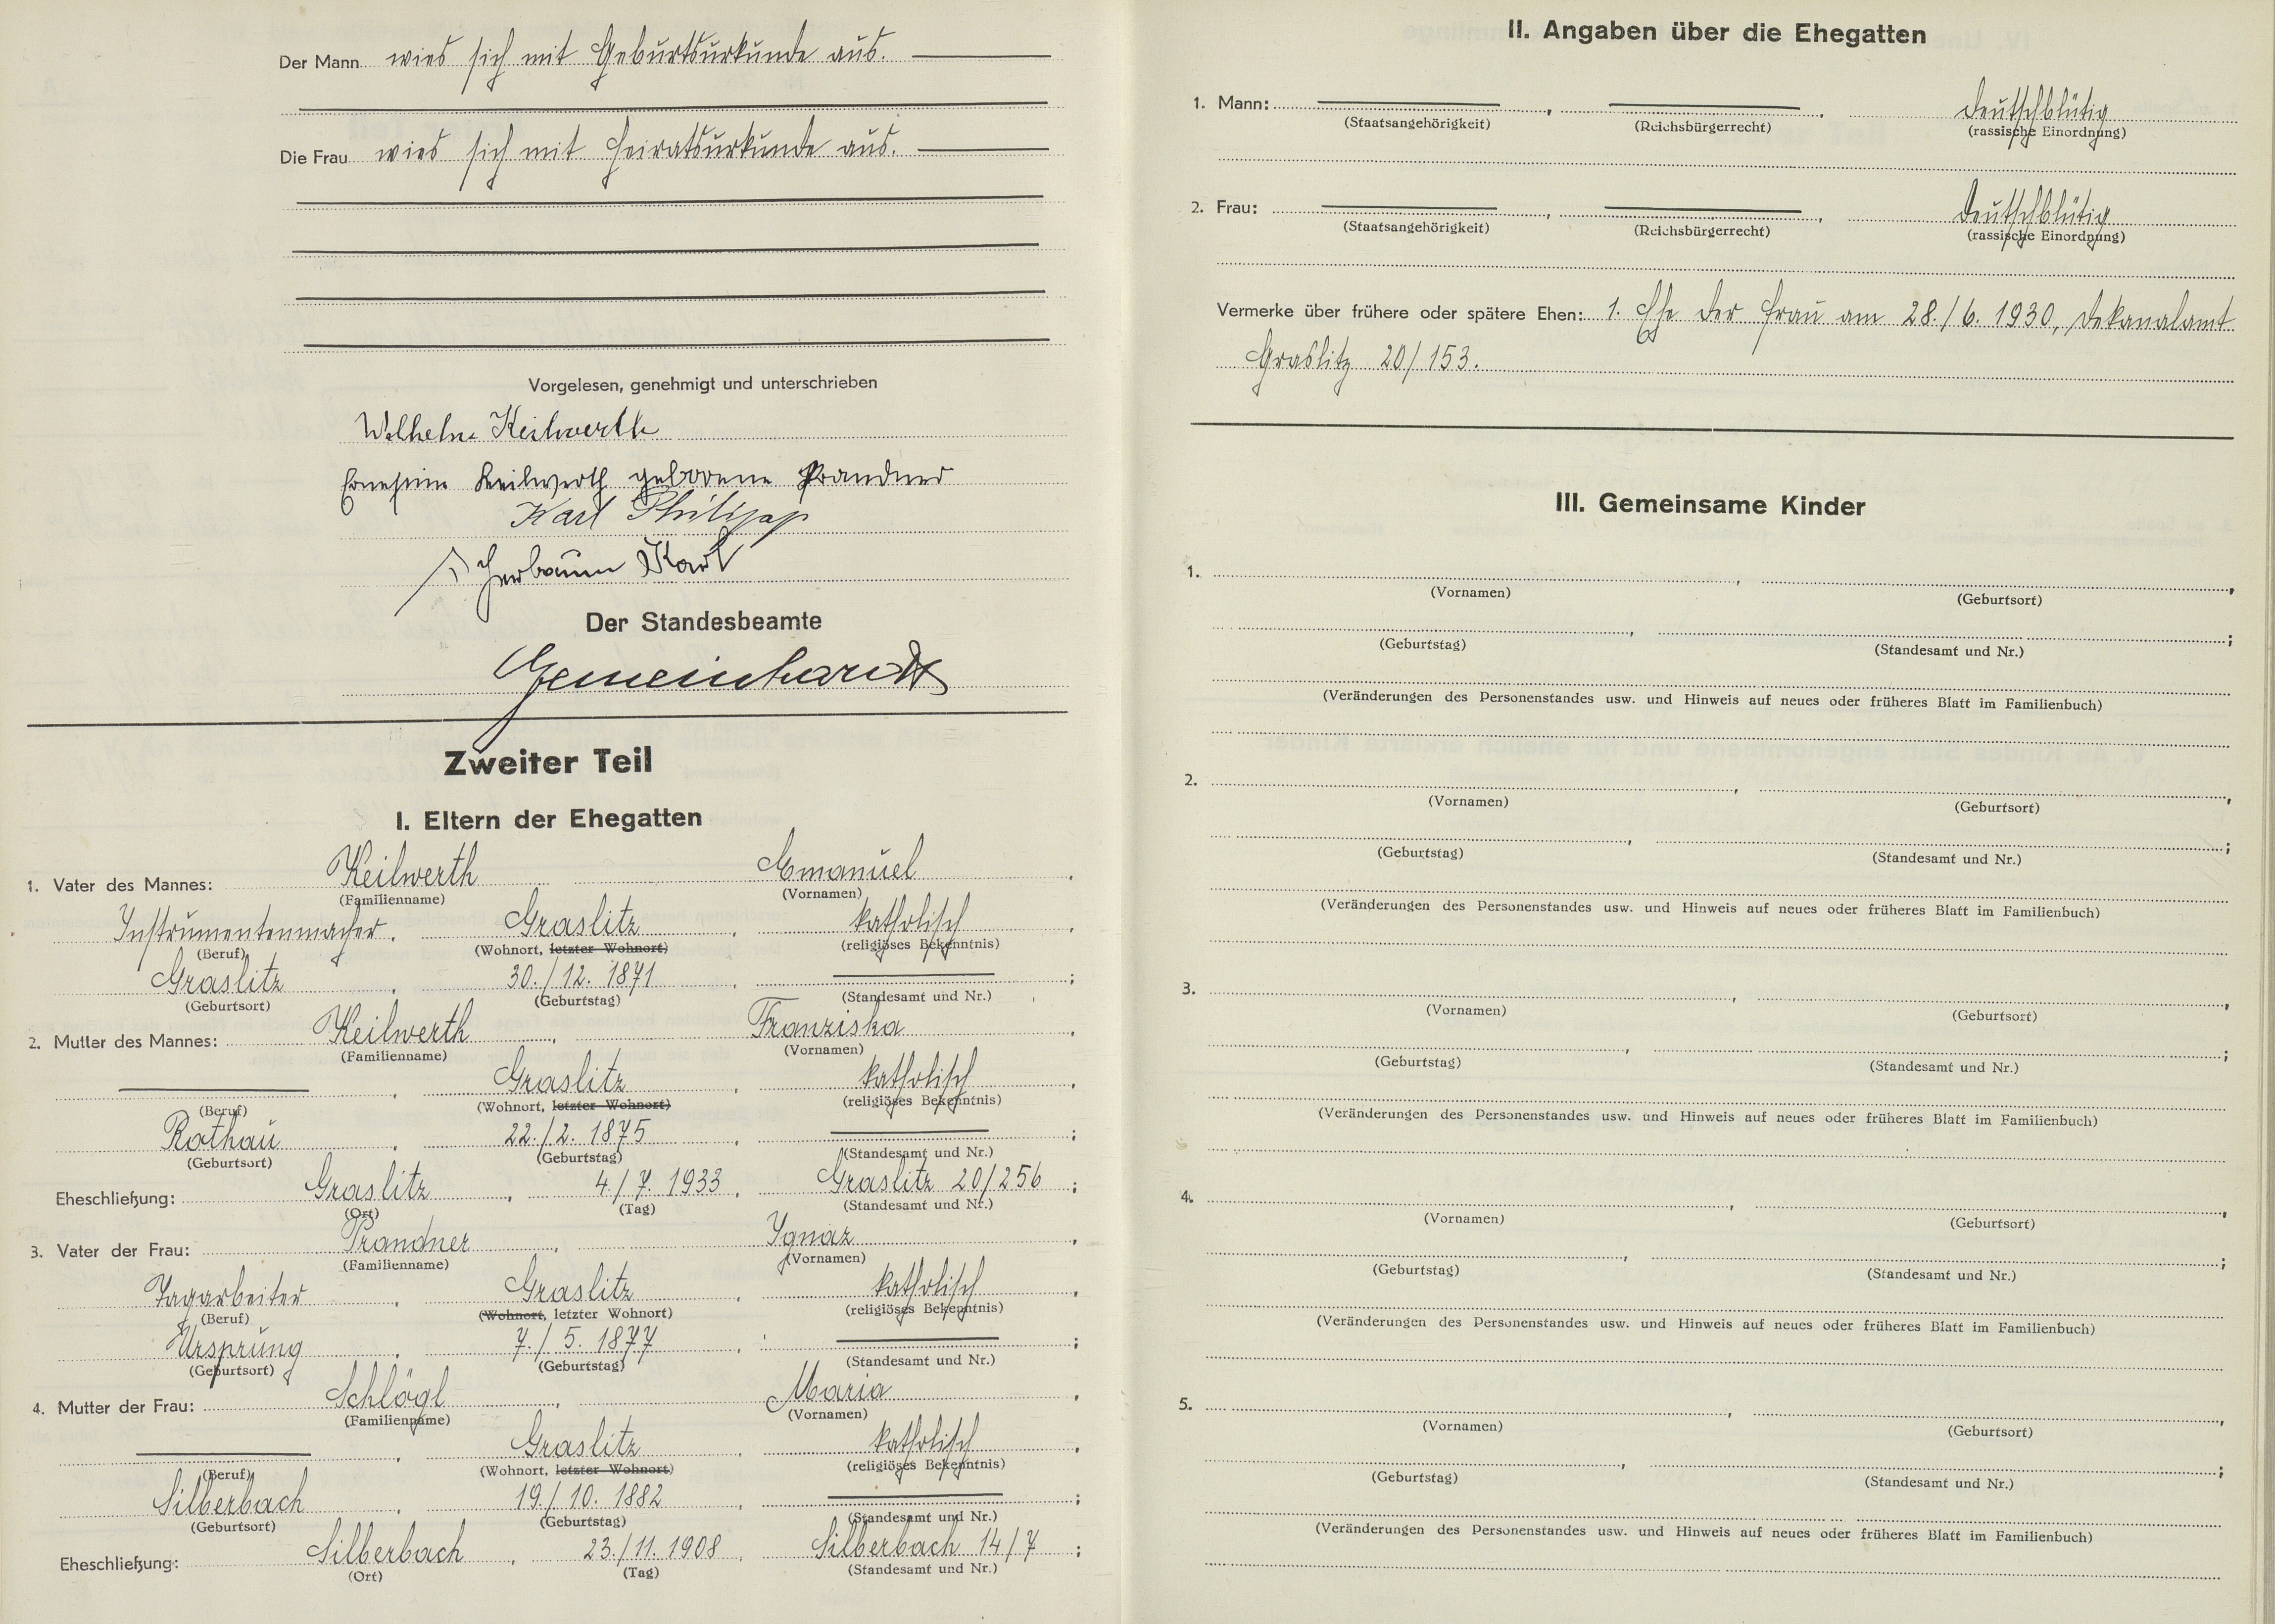 Der Mann wies sich mit Geburtsurkunde aus.
Die Frau wies sich mit Heiratsurkunde aus.
Vorgelesen, genehmigt und unterschrieben
Wilhelm Keilwerth
Ernestine Keilwerth geborene Prandner
Karl Philipp
Karl
Der Standesbeamte
Gemeinhardt
Zweiter Teil
I. Eltern der Ehegatten
1. Vater des Mannes: Keilwerth Emanuel
(Familienname) (Vornamen)
Instrumentenmacher, Graslitz, katholisch,
(Beruf) (Wohnort, letzter Wohnort) (religiöses Bekenntnis)
Graslitz, 30./12. 1871, ;
(Geburtsort) (Geburtstag) (Standesamt und Nr.)
2. Mutter des Mannes: Keilwerth, Franziska,
(Familienname) (Vornamen)
Graslitz, katholisch,
(Beruf) (Wohnort, letzter Wohnort) (religiöses Bekenntnis)
Rothau, 22./2. 1875, ;
(Geburtsort) (Geburtstag) (Standesamt und Nr.)
Eheschließung: Graslitz, 4./7. 1933, Graslitz 20/256 ;
(Ort) (Tag) (Standesamt und Nr.)
3. Vater der Frau: Prandner, Ignaz,
(Familienname) (Vornamen)
Tagarbeiter, Graslitz, katholisch,
(Beruf) (Wohnort, letzter Wohnort) (religiöses Bekenntnis)
Ursprung, 7./5. 1877, ;
(Geburtsort) (Geburtstag) (Standesamt und Nr.)
4. Mutter der Frau: Schlögl, Maria,
(Familienname) (Vornamen)
Graslitz, katholisch,
(Beruf) (Wohnort, letzter Wohnort) (religiöses Bekenntnis)
Silberbach, 19./10. 1882, ;
(Geburtsort) (Geburtstag) (Standesamt und Nr.)
Eheschließung: Silberbach, 23./11. 1908, Silberbach 14/7 ;
(Ort) (Tag) (Standesamt und Nr.)
II. Angaben über die Ehegatten
1. Mann: , , deutschblütig
(Staatsangehörigkeit) (Reichsbürgerrecht) (rassische Einordnung)
2. Frau: , , deutschblütig
(Staatsangehörigkeit) (Reichsbürgerrecht) (rassische Einordnung)
Vermerke über frühere oder spätere Ehen: 1. Ehe der Frau am 28./6. 1930, Dekanalamt
Graslitz 20/153.
III. Gemeinsame Kinder
1. , ,
(Vornamen) (Geburtsort)
, ;
(Geburtstag) (Standesamt und Nr.)
(Veränderungen des Personenstandes usw. und Hinweis auf neues oder früheres Blatt im Familienbuch)
2. , ,
(Vornamen) (Geburtsort)
, ;
(Geburtstag) (Standesamt und Nr.)
(Veränderungen des Personenstandes usw. und Hinweis auf neues oder früheres Blatt im Familienbuch)
3. , ,
(Vornamen) (Geburtsort)
, ;
(Geburtstag) (Standesamt und Nr.)
(Veränderungen des Personenstandes usw. und Hinweis auf neues oder früheres Blatt im Familienbuch)
4. , ,
(Vornamen) (Geburtsort)
, ;
(Geburtstag) (Standesamt und Nr.)
(Veränderungen des Personenstandes usw. und Hinweis auf neues oder früheres Blatt im Familienbuch)
5. , ,
(Vornamen) (Geburtsort)
, ;
(Geburtstag) (Standesamt und Nr.)
(Veränderungen des Personenstandes usw. und Hinweis auf neues oder früheres Blatt im Familienbuch)